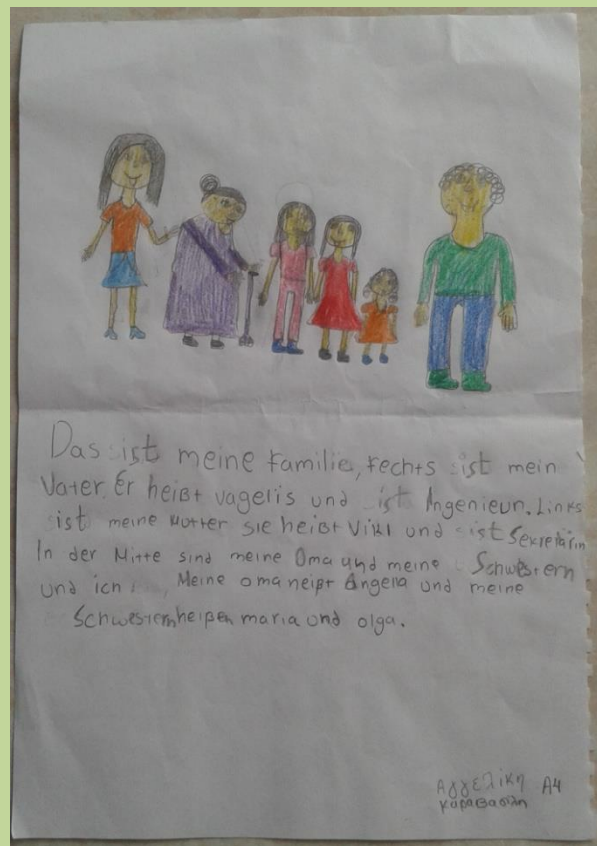 Das ist meine Familie, rechts ist mein
Vater. Er heißt vagelis und ist Ingenieur. Links
ist meine Mutter sie heißt Viki und ist Sekretärin
In der Mitte sind meine Oma und meine Schwestern
und ich. Meine oma heißt Angela und meine
Schwestern heißen maria und olga.
Αγγελικη Α4
καραβασιλη